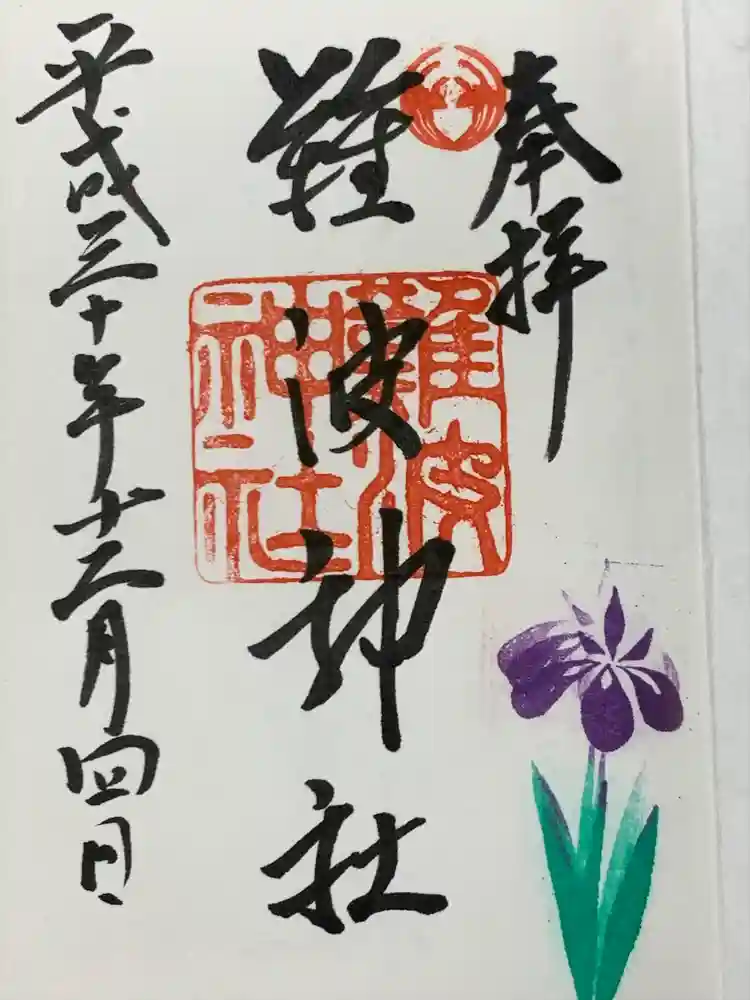 奉拝
難波神社
難波神社
平成三十年十二月四日